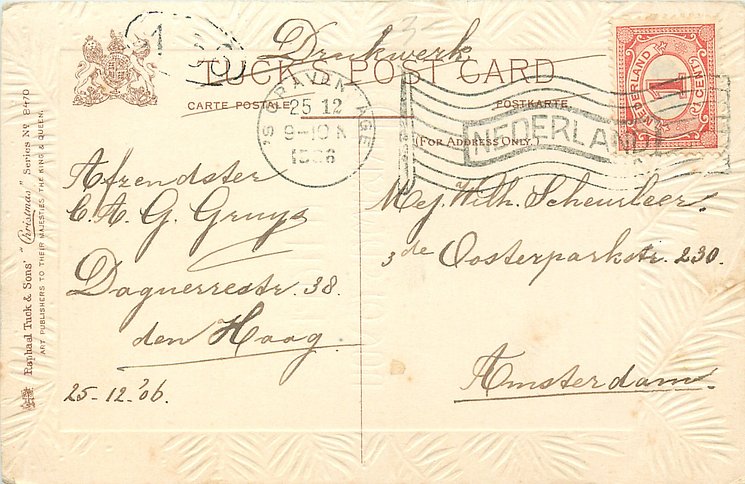 Drukwerk
TUCK'S POST CARD
CARTE POSTALE
POSTKARTE
(FOR ADDRESS ONLY.)
'S GRAVENHAGE
25 12
9-10 N
1906
NEDERLAND
NEDERLAND
1
CENT
Afzendster
C. A. G. Gruys
Daguerrestr. 38.
den Haag.
25-12-'06.
Mej. Wilh. Scheurleer.
3de Oosterparkstr. 230.
Amsterdam.
Raphael Tuck & Sons' "Christmas" Series No 8470
ART PUBLISHERS TO THEIR MAJESTIES THE KING & QUEEN.